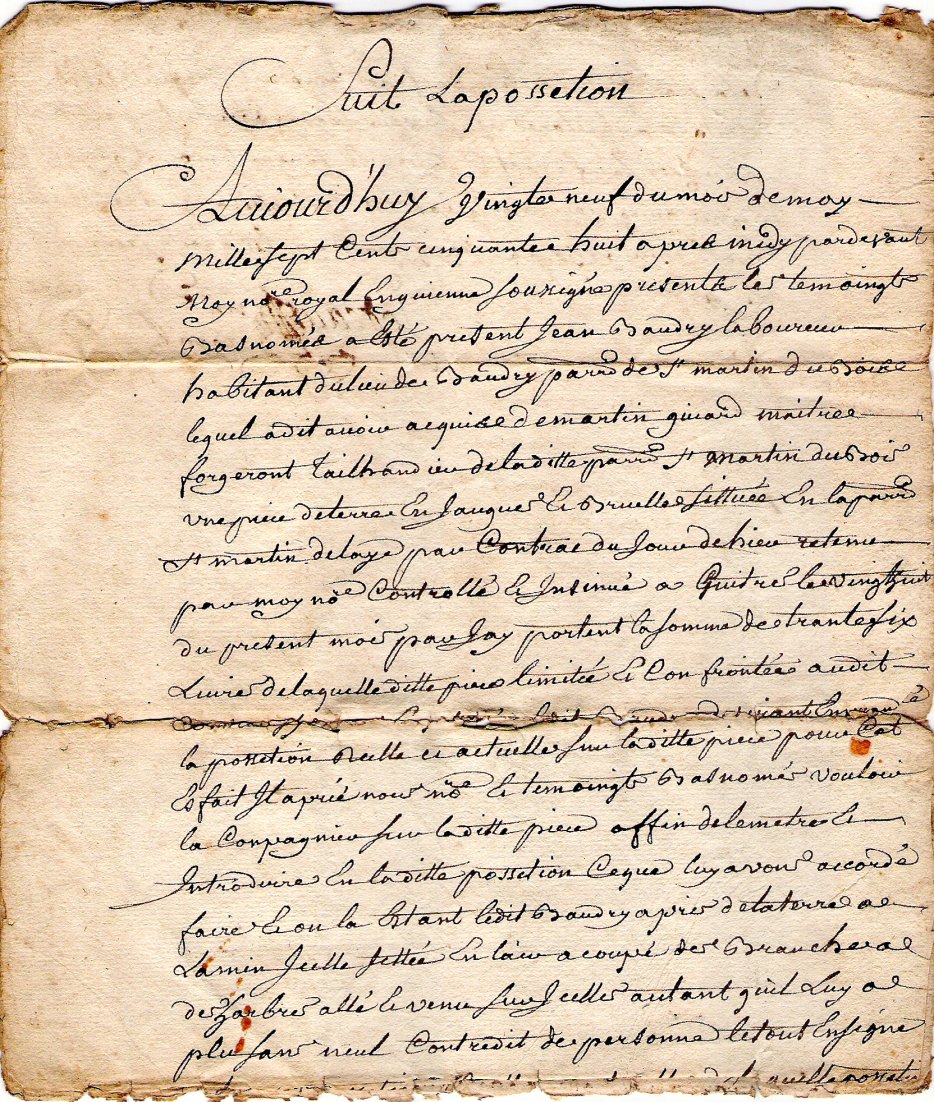 Suit La possetion
Aujourd'huy Vingte neuf du mois de may
mille sept Cent cinquante huit apres midy pardevant
Moy nore royal En guienne sousigné presents les temoingts
Bas només a Eté present Jean Baudry laboureur
habitant du lieu de Baudry parre de St martin du Boise
lequel a dit avoir acquise de martin girard maitre
forgeront Tailhandieu de laditte parre St martin du Bois
une piece de terre En Jaugue et Bruelle sittuée En la parre
St martin de laye par Contrac du Jour de hieu retenu
par moy nore Controllé et Insinué a Guitre le vingt huit
du present mois par Jay portent la somme de trante six
Livres de laquelle ditte piece limitée et Confrontée audit
la possetion Reelle et actuelle sur laditte piece pour Cet
Es fait Jl a prié nous nore et temoingts Bas només vouloir
la Conpagnieu sur laditte piece affin de le metre et
Introduire En laditte possetion Ce que luy avons accordé
faire et on la Etant ledit Baudry a pris de la terre a
La min Jcelle jettée En l'air a coupé des Branches a
des arbres allé et venu sur Jcelle autant quil Luy a
plu sans neul Contredit de personne le tout En signe